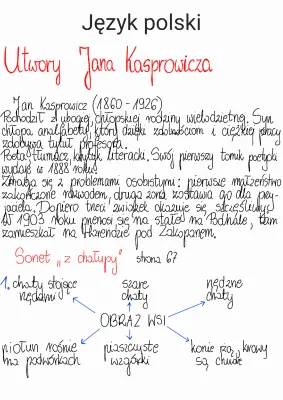 Język polski
Utwory Jana Kasprowicza
Jan Kasprowicz (1860-1926)
Pochodził z ubogiej chłopskiej rodziny wielodzietnej. Syn
chłopa analfabety, który dzięki zdolnościom i ciężkiej pracy
zdobywa tytuł profesora.
Poeta, tłumacz, krytyk literacki. Swój pierwszy tomik poetycki
wydaje w 1888 roku.
Zmaga się z problemami osobistymi: pierwsze małżeństwo
zakończone rozwodem, druga żona zostawia go dla przy-
jaciela. Dopiero trzeci związek okazuje się szczęśliwy.
W 1903 roku przenosi się na stałe na Podhale, tam
zamieszkał na Harendzie pod Zakopanem.
Sonet „z chałupy" strona 67
1. chaty stojące szare nędzne
rzędami chaty chaty
OBRAZ WSI
piołun rośnie piaszczyste konie rżą, krowy
na podwórkach wzgórki są chude